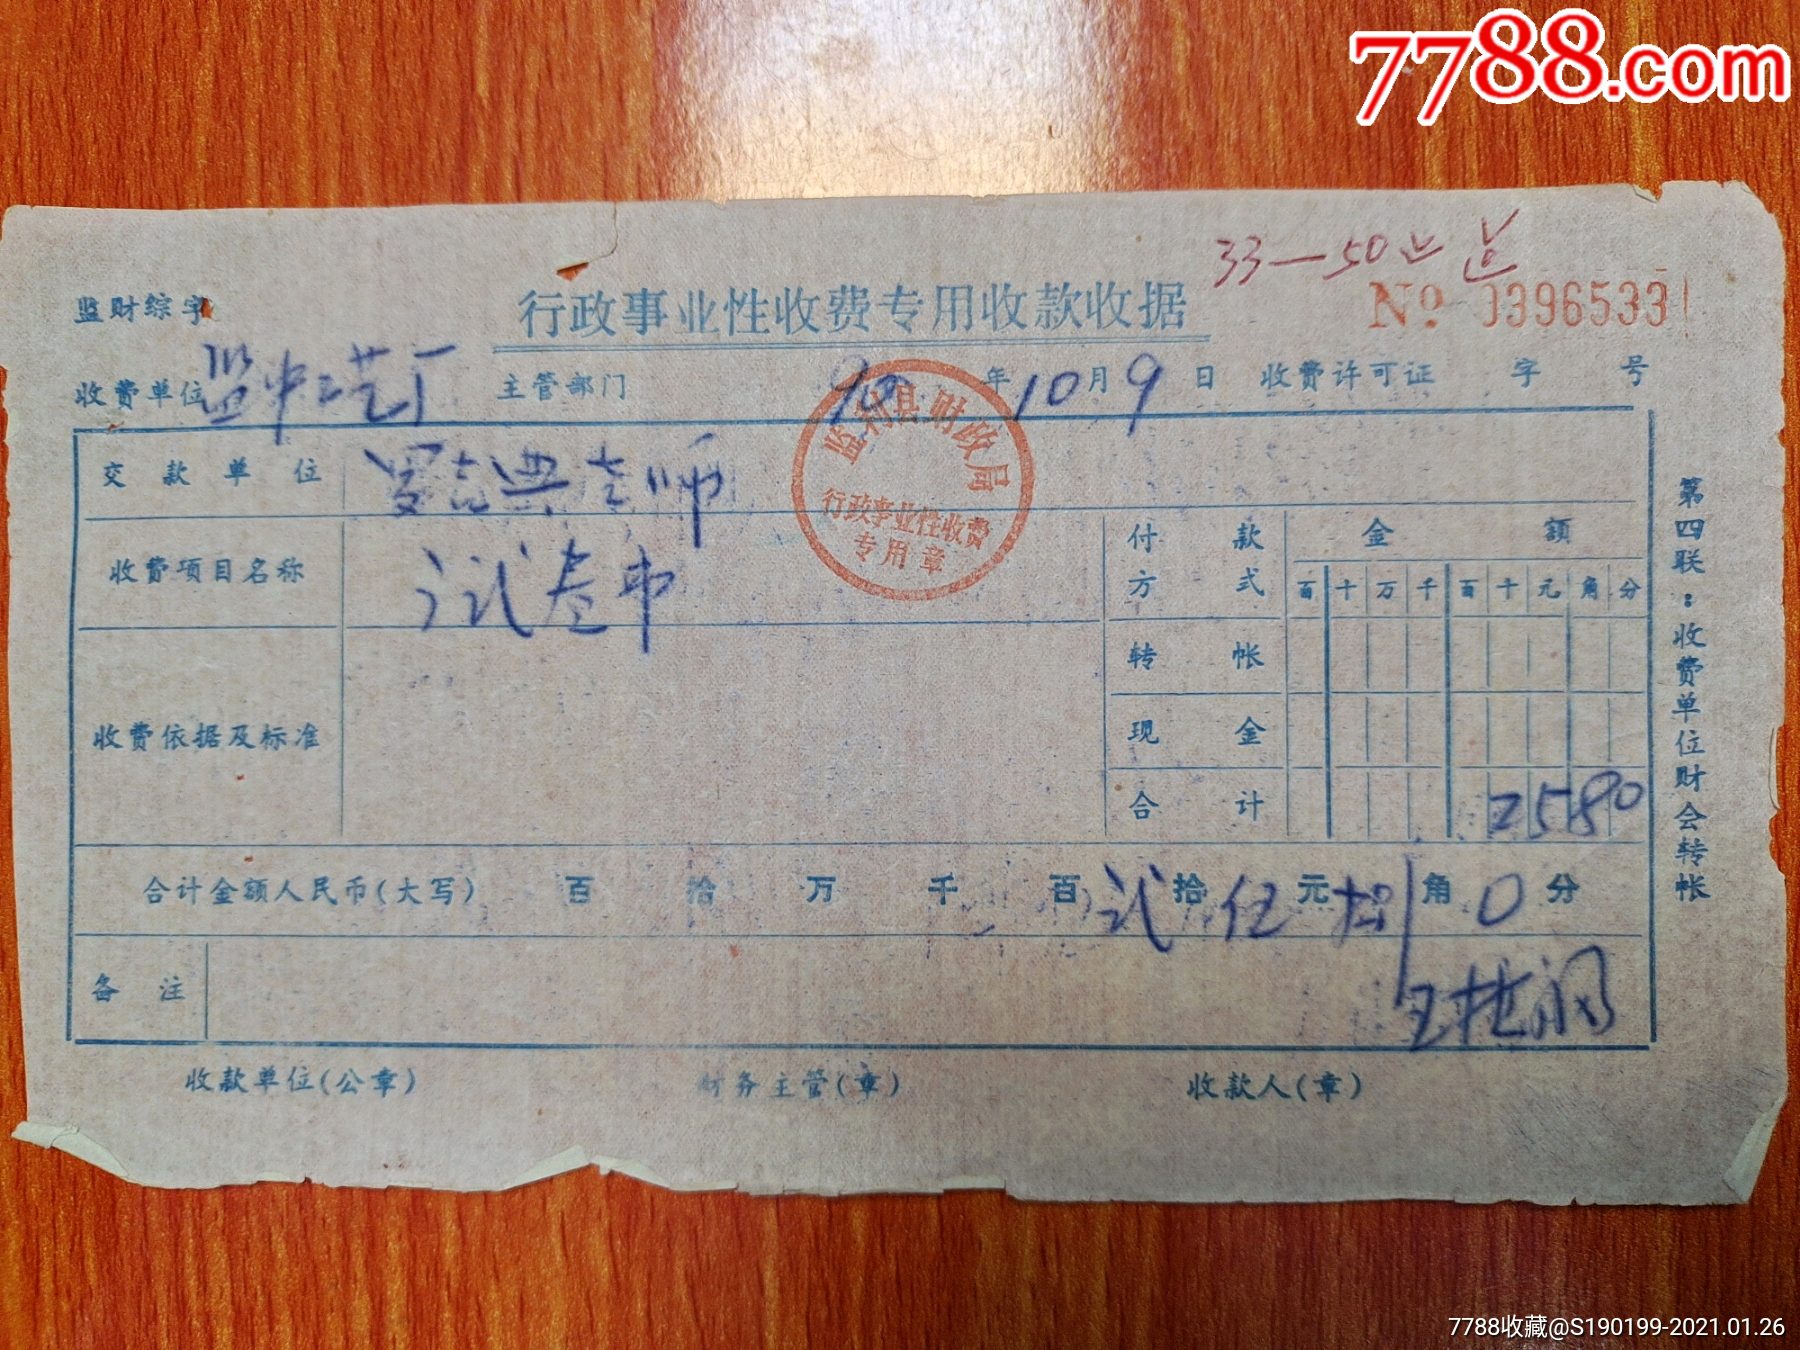 7788.com
33—50
监财综字
行政事业性收费专用收款收据
№ 0396533
收费单位 监中工艺厂 主管部门 90年10月9日 收费许可证 字 号
监利县财政局
行政事业性收费
专用章
交款单位 罗 老师
收费项目名称 试卷
付款方式 金额
百十万千百十元角分
转帐
现金
收费依据及标准
合计 2580
合计金额人民币(大写) 百 拾 万 千 百 贰拾伍元捌角0分
备注 王
收款单位(公章) 财务主管(章) 收款人(章)
第四联:收费单位财会转帐
7788收藏@S190199-2021.01.26